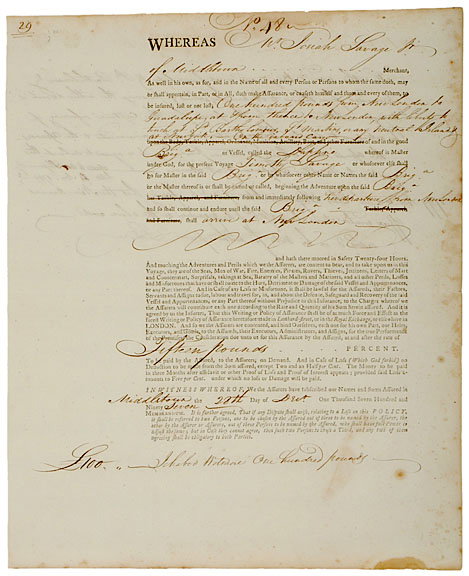 29
No. 48
WHEREAS Mr. Josiah Savage Jr
of Middletown Merchant,
As well in his own, as for, and in the Name of all and every Person or Persons to whom the same doth, may
or shall appertain, in Part, or in All, doth make Assurance, or causeth himself and them and every of them, to
be insured, lost or not lost, One hundred pounds from New London to
Guadaloupe, at & from thence to New London, with liberty to
touch at
Upon the Body, Tackle, Apparel, and Furniture of and in the good
Brig or Vessel, called the whereof is Master
under God, for the present Voyage Timothy Savage or whosoever else shall
go for Master in the said Brig or by whatsoever other Name or Names the said Brig
or the Master thereof is or shall be named or called, beginning the Adventure upon the said Brig
her Tackle, Apparel, and Furniture from and immediately following her departure from New London
and so shall continue and endure until the said Brig Tackle, Apparel
and Furniture, shall arrive at New London
and hath there moored in Safety Twenty-four Hours.
And touching the Adventures and Perils which we the Assurers, are content to bear, and to take upon us in this
Voyage, they are of the Seas, Men of War, Fire, Enemies, Pirates, Rovers, Thieves, Jettisons, Letters of Mart
and Countermart, Surprisals, takings at Sea, Barratry of the Masters and Mariners, and all other Perils, Losses
and Misfortunes that have or shall come to the Hurt, Detriment or Damage of the said Vessel and Appurtenances,
or any Part thereof. And in Case of any Loss or Misfortune, it shall be lawful for the Assureds, their Factors,
Servants and Assigns to sue, labour and travel for, in, and about the Defence, Safeguard and Recovery of the said
Vessel and Appurtenances, or any Part thereof without Prejudice to this Insurance, to the Charges whereof we
the Assurers will contribute each one according to the Rate and Quantity of his Sum herein assured. And it is
agreed by us the Insurers, That this Writing or Policy of Assurance shall be of as much Force and Effect as the
surest Writing or Policy of Assurance heretofore made in Lombard-street, or in the Royal Exchange, or elsewhere in
LONDON. And so we the Assurers are contented, and bind Ourselves, each one for his own Part, our Heirs,
Executors, and Goods, to the Assureds, their Executors, Administrators, and Assigns, for the true Performance
of the Premises, confessing Ourselves paid the Consideration due unto us for this Assurance by the Assured, at and after the rate of
Fifteen pounds PERCENT.
To be paid by the Assured, to the Assurers, on Demand. And in Case of Loss (Which God forbid) no
Deduction to be made from the Sum assured, except Two and an Half per Cent. The Money to be paid
in Three Months after assured or other Proof of Loss and Proof of Interest appears; provided said Loss a-
mounts to Five per Cent. under which no Loss or Damage will be paid.
IN WITNESS WHEREOF, We the Assurers have subscribed our Names and Sums Assured in
Middletown the 28th Day of Sept One Thousand Seven Hundred and
Ninety
MEMORANDUM. It is further agreed, That if any Dispute shall arise, relating to a Loss on this POLICY,
it shall be referred to two Persons, one to be chosen by the Assured out of three to be named by the Assurer, the
other by the Assurer or Assurers, out of three Persons to be named by the Assured, who shall have full Power to
adjust the same; but in Case they cannot agree, then such two Persons to chuse a Third, and any two of them
agreeing shall be obligatory to both Parties.
£100 Ichabod Wetmore One hundred pounds